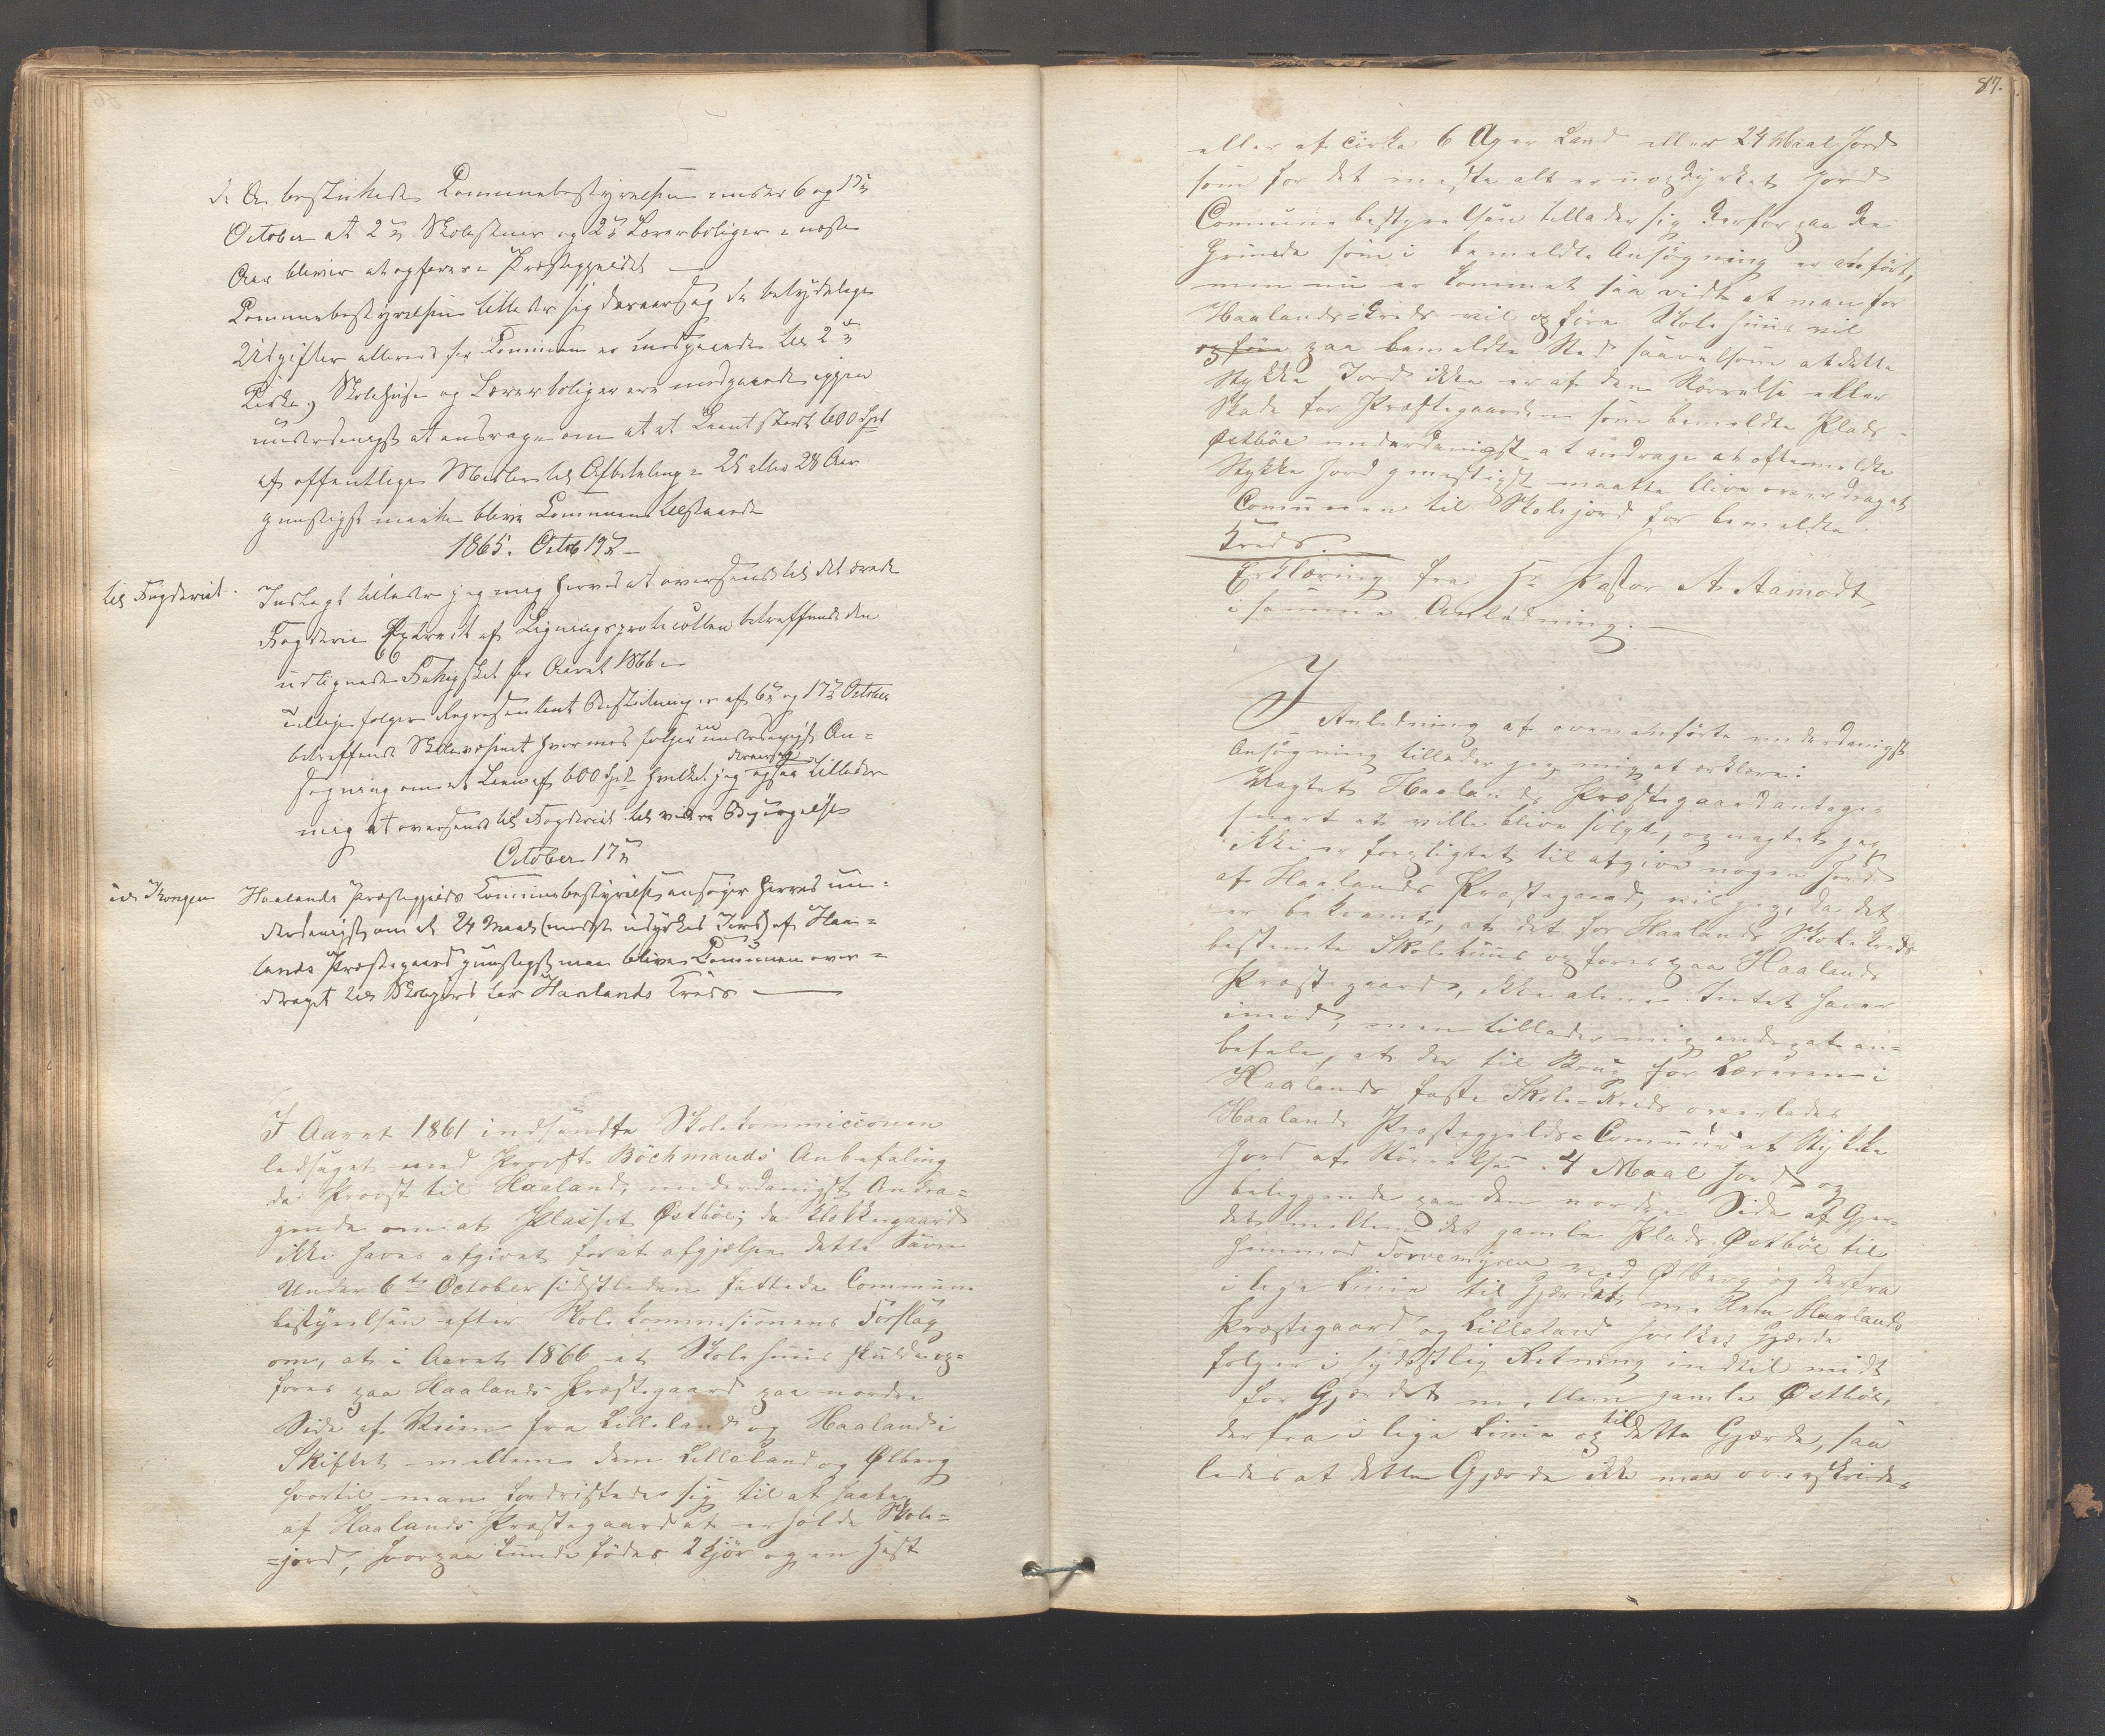 de besluttede Communebestyrelsen under 6 og 17de
October at 2de Skolestuer og 2de Lærerboliger i næste
Aar bliver at opføres i Præstegjeldet —
Communebestyrelsen tillader sig de betydelige
Udgifter allerede for Communen er medgaaende til 2de
Kirker, Skolehuse og Lærerboliger ere medgaaende igjen
underdanigst at andrage om at et Laan stort 600 Spd
af offentlige Midler til Afbetaling i 25 eller 28 Aar
gunstigst maatte blive Communen tilstaaede
1865. Octob 19de —
til Fogderiet.
Indlagt tillader jeg mig herved at oversende til det ærede
Fogderie Extract af Ligningsprotocollen betreffende den
udlignede Fattigskat for Aaret 1866 —
Tillige følger Representant Beslutninger af 6te og 17de October
betreffende Skolevæsenet hvormed følger en underdanigst An=
søgning om et Laan af 600 Spd hvilket jeg ogsaa tillader
mig at oversende til Fogderiet til videre Besørgelse
October 17de
til Kongen
Haalands Præstegjelds Communebestyrelse ansøger herved un=
derdanigst om at 24 Maal (mest udyrket Jord) af Haa=
lands Præstegaard gunstigst maa blive Communen over=
draget til Skolejord for Haalands Kreds —
I Aaret 1861 indsendte Skolekommicionen
ledsaget med Provst Böckmands Anbefaling
da Provst til Haaland, underdanigst Andra=
gende om at Pladset Østböe, da Klokkergaard
ikke haves afgivet for at afhjælpe dette Savn
Under 6te October sidstleden fattede Commune
bestyrelsen efter Skolekommisionens Forslag
om, at i Aaret 1866 et Skolehuus skulde op=
føres paa Haalands Præstegaard paa nordre
Side af Veien fra Lilleland og Haaland i
Skiftet mellem dem Lilleland og Ølberg
hvortil man fordristede sig til at haabe
af Haalands Præstegaard at erholde Skole=
=jord, hvorpaa kunde fødes 2 Kjør og en Hest
87.
eller af cirka 6 Ager Land eller 24 Maal Jord
som for det meste alt er uopdyrket Jord
Communebestyrelsen tillader sig derfor paa de
Grunde som i bemeldte Ansøgning er anført,
men nu er kommet saa vidt at man for
Haalands=Kreds vil opføre Skolehuus vil
opføre paa bemeldte Sted saavelsom at dette
Stykke Jord ikke er af den Størrelse eller
Skade for Præstegaarden som bemeldte Plads
Østböe underdanigst at andrage at oftemeldte
Stykke Jord gunstigst maatte blive overdraget
Communen til Skolejord for bemeldte
Kreds.
Erklæring fra Hr Pastor A. Aamodt
i samme Anledning. —
I Anledning af ovenanførte underdanigst
Ansøgning tillader jeg mig at erklære:
Uagtet Haalands Præstegaard antages
snart at ville blive solgt, og uagtet jeg
ikke er forpligtet til at give nogen Jord
af Haalands Præstegaard, vil jeg, da det
er bekjendt, at det for Haalands Skolekreds
bestemte Skolehuus opføres paa Haalands
Præstegaard, ikke alene Intet haver
imod, men tillader mig endog at an=
befale, at der til Brug for Læreren i
Haalands faste Skole=Kreds overlades
Haalands Præstegjelds=Commune et Stykke
Jord af Størrelse 4 Maal Jord og
beliggende paa den nordre Side af Gjer=
det mellem det gamle Plads Østböe til
henimod Torvemyren ved Ølberg og derfra
i lige Linie til Gjerdet mellem Haalands
Præstegaard og Lilleland hvilket Gjerde
følger i sydøstlig Retning indtil midt
for Gjerdet mellem gamle Østböe,
derfra i lige Linie op til dette Gjærde, saa
ledes at dette Gjærde ikke maa overskrides